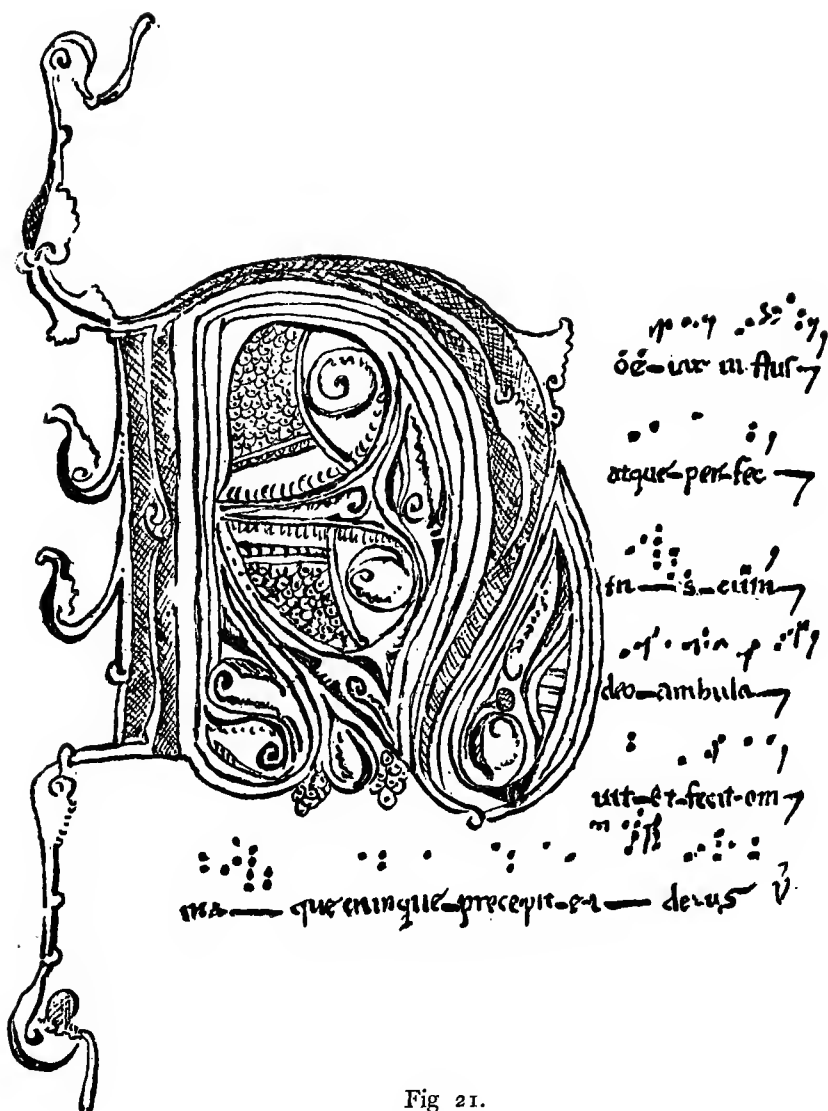 N
óé-uir iustus
atque-perfec
tus-cum
deo-ambula
uit-et-fecit-om
nia-quecunque-precepit-ei-deus v̇
Fig 21.